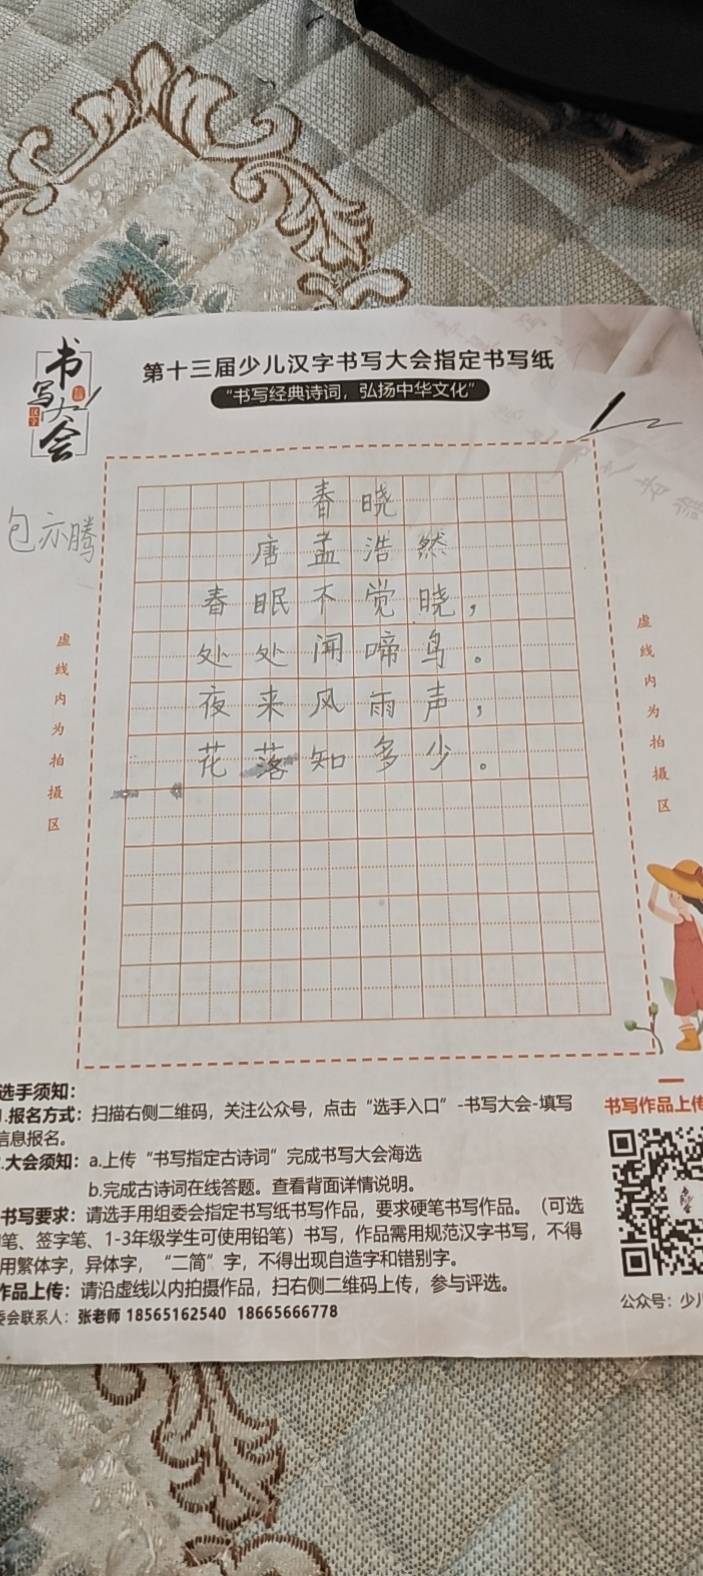 书写大会
汉字
第十三届少儿汉字书写大会指定书写纸
“书写经典诗词，弘扬中华文化”
包亦腾
春晓
唐孟浩然
春眠不觉晓，
处处闻啼鸟。
夜来风雨声，
花落知多少。
虚线内为拍摄区
虚线内为拍摄区
选手须知：
1.报名方式：扫描右侧二维码，关注公众号，点击“选手入口”-书写大会-填写
信息报名。
.大会须知：a.上传“书写指定古诗词”完成书写大会海选
b.完成古诗词在线答题。查看背面详情说明。
书写要求：请选手用组委会指定书写纸书写作品，要求硬笔书写作品。（可选
笔、签字笔、1-3年级学生可使用铅笔）书写，作品需用规范汉字书写，不得
用繁体字，异体字，“二简”字，不得出现自造字和错别字。
作品上传：请沿虚线以内拍摄作品，扫右侧二维码上传，参与评选。
委会联系人：张老师 18565162540 18665666778
书写作品上传
公众号：少儿